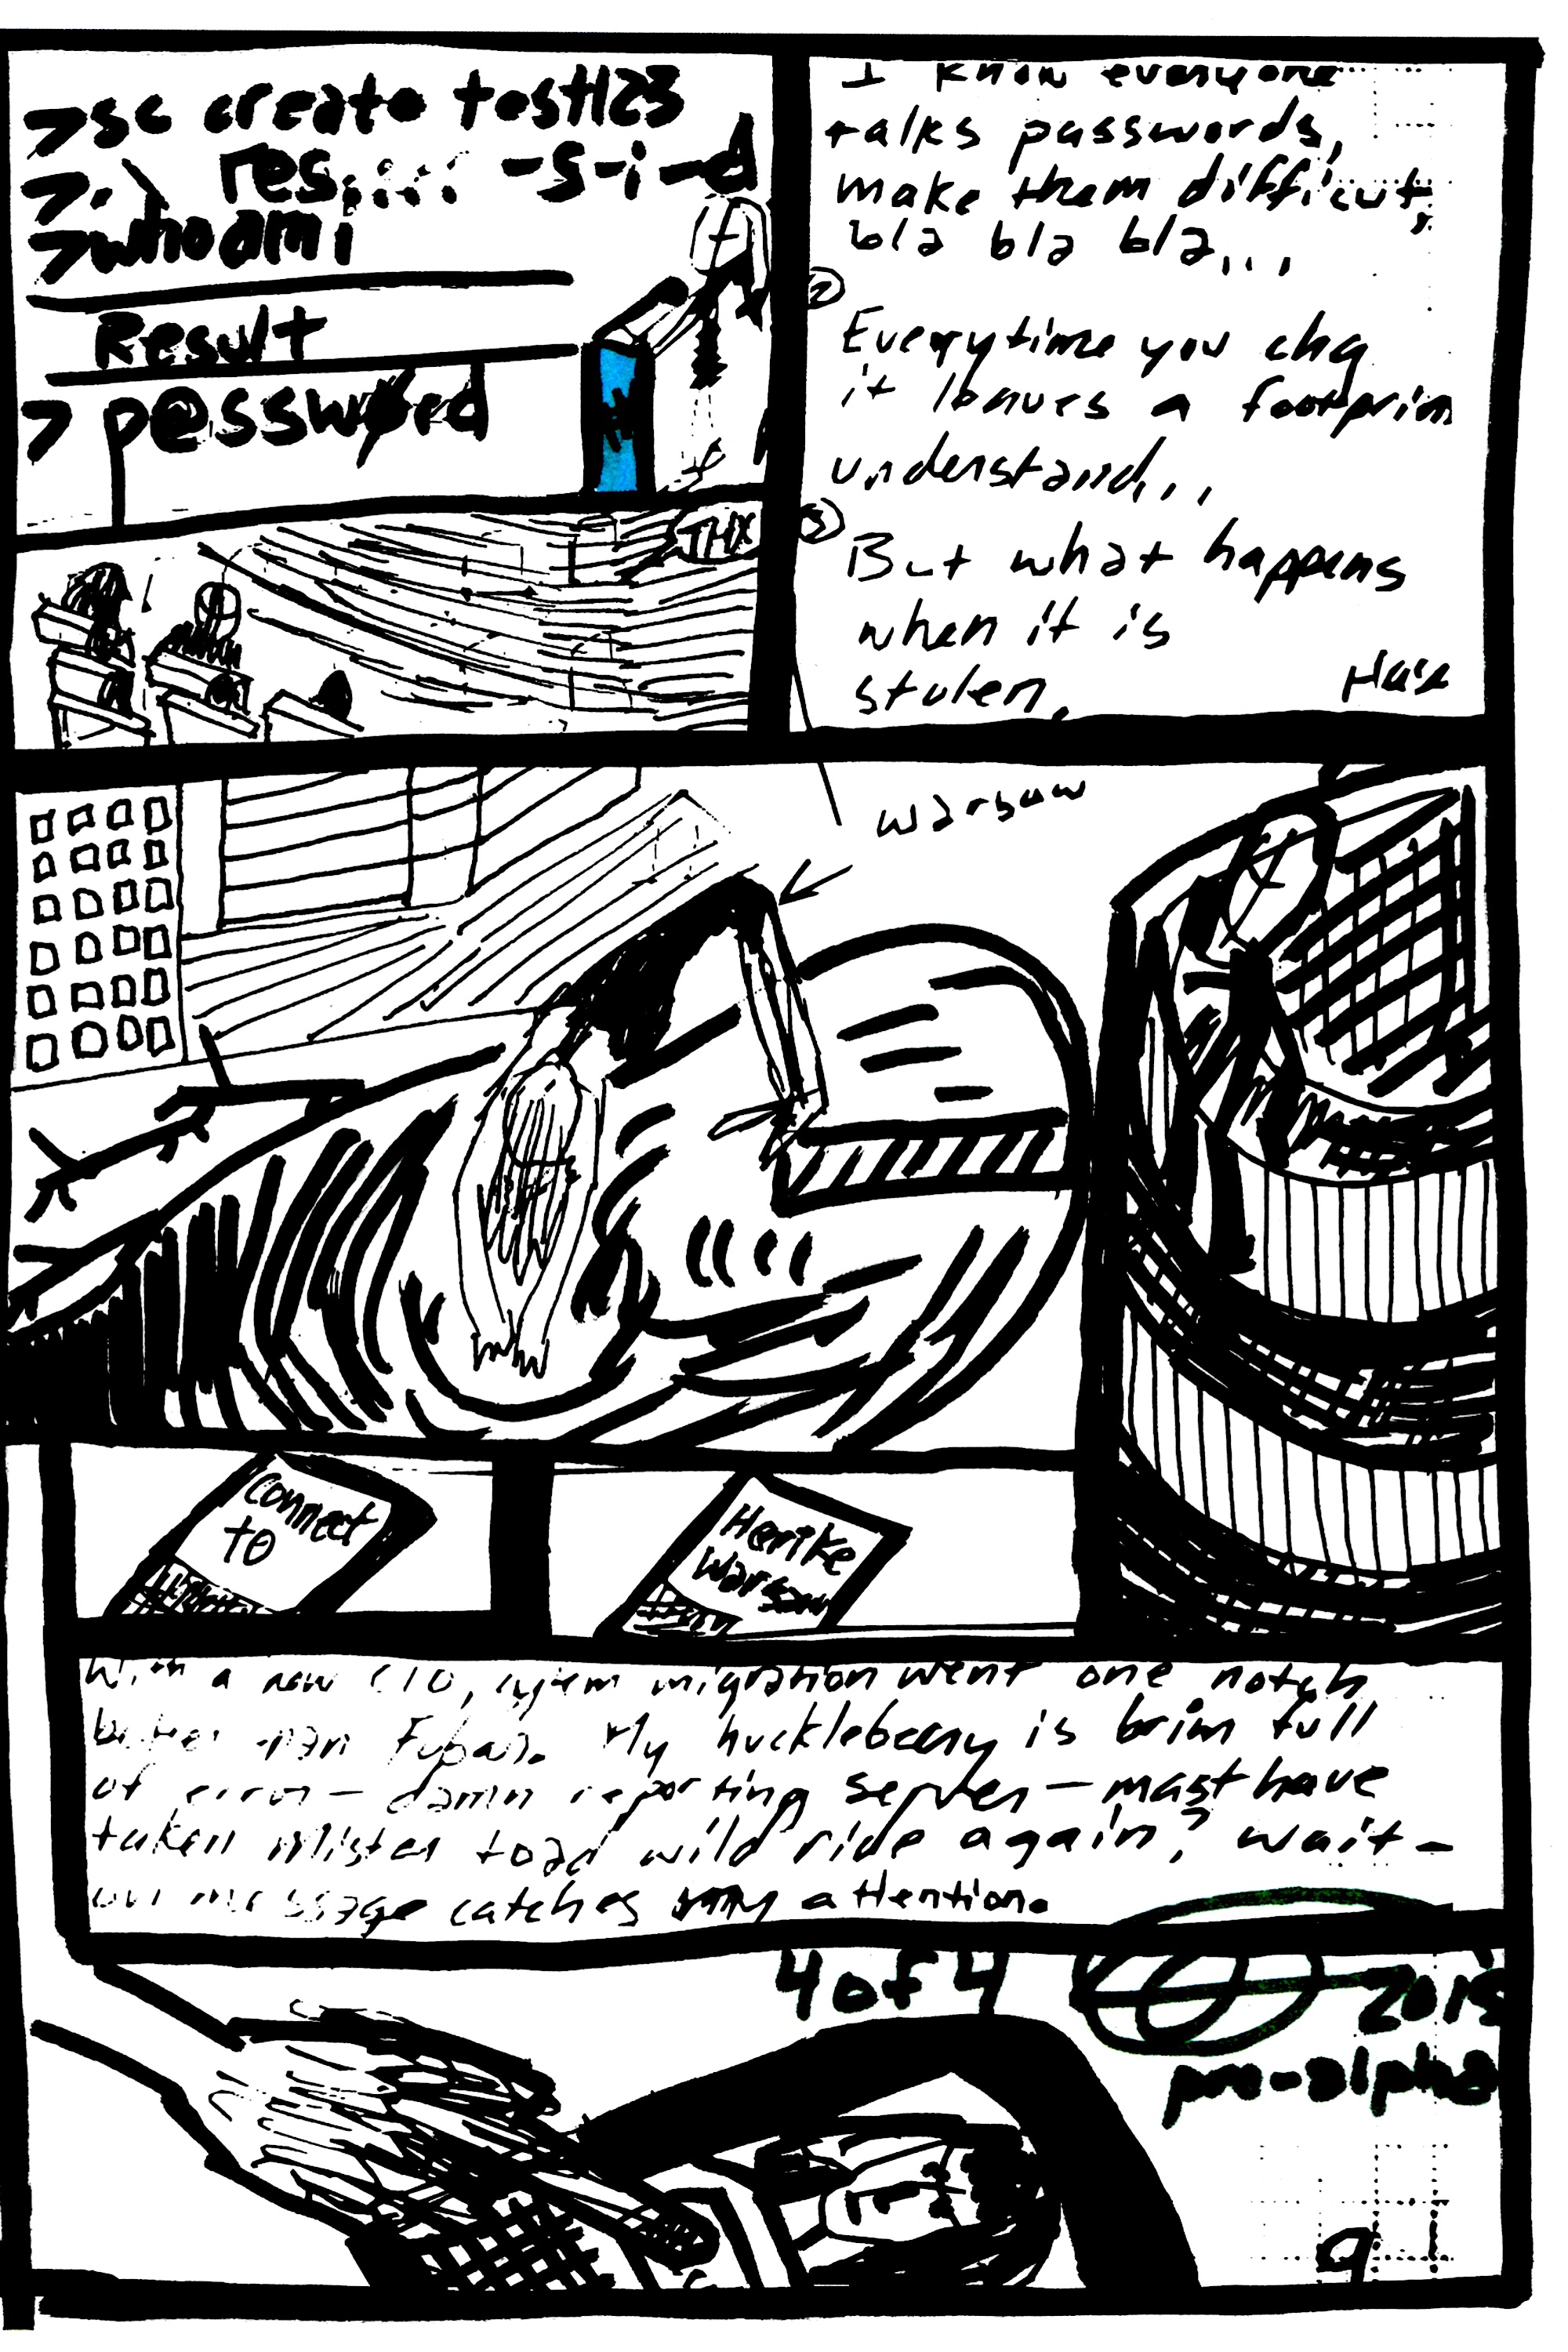 >sc create test123
>.\ res.:.:.: -s-i-d
>whoami
Result
> p@sswørd
THX
I know everyone
talks passwords,
make them difficut,
bla bla bla...
2
Everytime you chg
it leaves a footprin
understand...
3
But what happens
when it is
stolen.
Warsaw
Connect
to
Hertke
Warsaw
With a new CIO, system migration went one notch
better than Fubar. My huckleberry is brim full
of error — damn reporting server — must have
taken Mister toad wild ride again? wait —
message catches my attention.
4 of 4
2015
pre-alpha
9